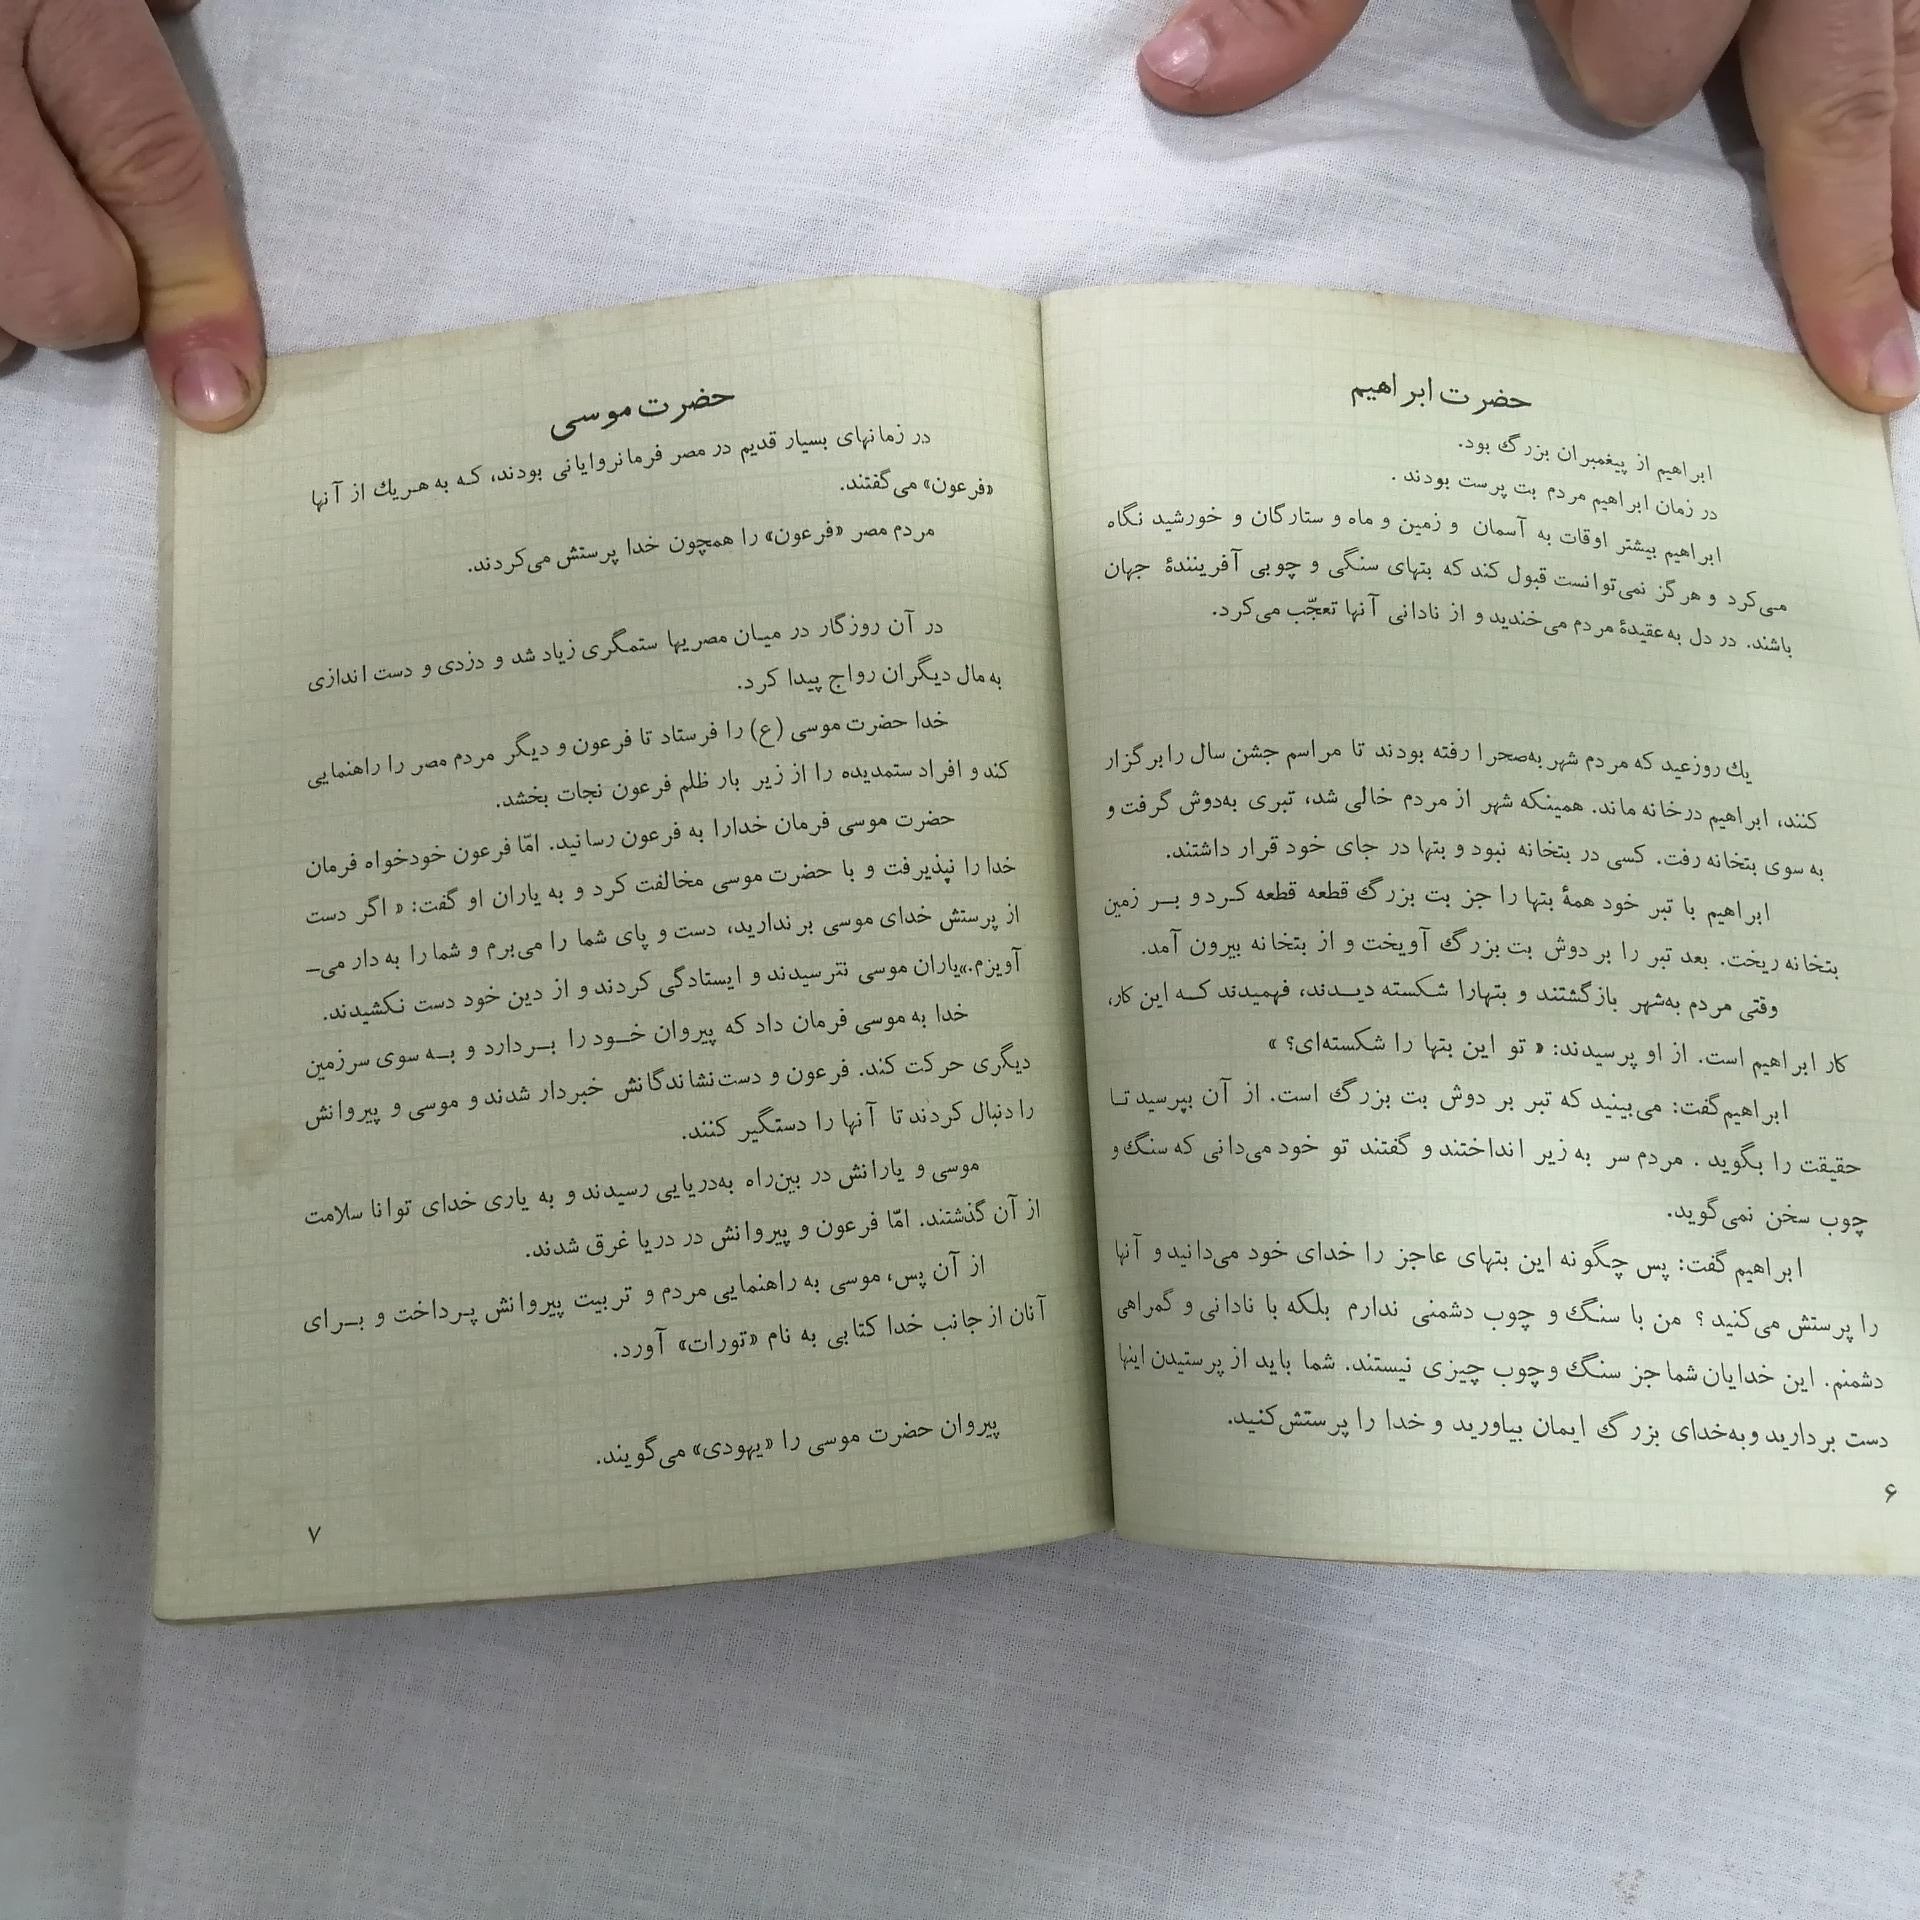 حضرت ابراهیم
ابراهیم از پیغمبران بزرگ بود.
در زمان ابراهیم مردم بت پرست بودند .
ابراهیم بیشتر اوقات به آسمان و زمین و ماه و ستارگان و خورشید نگاه
می‌کرد و هرگز نمی‌توانست قبول کند که بتهای سنگی و چوبی آفرینندهٔ جهان
باشند. در دل به‌عقیدهٔ مردم می‌خندید و از نادانی آنها تعجّب می‌کرد.
یك روزعید که مردم شهر به‌صحرا رفته بودند تا مراسم جشن سال را برگزار
کنند، ابراهیم درخانه ماند. همینکه شهر از مردم خالی شد، تبری به‌دوش گرفت و
به سوی بتخانه رفت. کسی در بتخانه نبود و بتها در جای خود قرار داشتند.
ابراهیم با تبر خود همهٔ بتها را جز بت بزرگ قطعه قطعه کـرد و بــر زمین
بتخانه ریخت. بعد تبر را بر دوش بت بزرگ آویخت و از بتخانه بیرون آمد.
وقتی مردم به‌شهر بازگشتند و بتهارا شکسته دیــدند، فهمیدند کــه این کار،
کار ابراهیم است. از او پرسیدند: « تو این بتها را شکسته‌ای؟ »
ابراهیم‌گفت: می‌بینید که تبر بر دوش بت بزرگ است. از آن بپرسید تــا
حقیقت را بگوید . مردم سر به زیر انداختند و گفتند تو خود می‌دانی که سنگ و
چوب سخن نمی‌گوید.
ابراهیم گفت: پس چگونه این بتهای عاجز را خدای خود می‌دانید و آنها
را پرستش می‌کنید ؟ من با سنگ و چوب دشمنی ندارم بلکه با نادانی و گمراهی
دشمنم. این خدایان شما جز سنگ وچوب چیزی نیستند. شما باید از پرستیدن اینها
دست بردارید و به‌خدای بزرگ ایمان بیاورید و خدا را پرستش‌کنید.
۶
حضرت موسی
در زمانهای بسیار قدیم در مصر فرمانروایانی بودند، کـه به هـریك از آنها
«فرعون» می‌گفتند.
مردم مصر «فرعون» را همچون خدا پرستش می‌کردند.
در آن روزگار در میـان مصریها ستمگری زیاد شد و دزدی و دست اندازی
به مال دیگران رواج پیدا کرد.
خدا حضرت موسی (ع) را فرستاد تا فرعون و دیگر مردم مصر را راهنمایی
کند و افراد ستمدیده را از زیر بار ظلم فرعون نجات بخشد.
حضرت موسی فرمان خدارا به فرعون رسانید. امّا فرعون خودخواه فرمان
خدا را نپذیرفت و با حضرت موسی مخالفت کرد و به یاران او گفت: « اگر دست
از پرستش خدای موسی برندارید، دست و پای شما را می‌برم و شما را به دار می‌ـ
آویزم.»یاران موسی نترسیدند و ایستادگی کردند و از دین خود دست نکشیدند.
خدا به موسی فرمان داد که پیروان خــود را بــردارد و بــه سوی سرزمین
دیگری حرکت کند. فرعون و دست‌نشاندگانش خبردار شدند و موسی و پیروانش
را دنبال کردند تا آنها را دستگیر کنند.
موسی و یارانش در بین‌راه به‌دریایی رسیدند و به یاری خدای توانا سلامت
از آن گذشتند. امّا فرعون و پیروانش در دریا غرق شدند.
از آن پس، موسی به راهنمایی مردم و تربیت پیروانش پـرداخت و بــرای
آنان از جانب خدا کتابی به نام «تورات» آورد.
پیروان حضرت موسی را «یهودی» می‌گویند.
۷